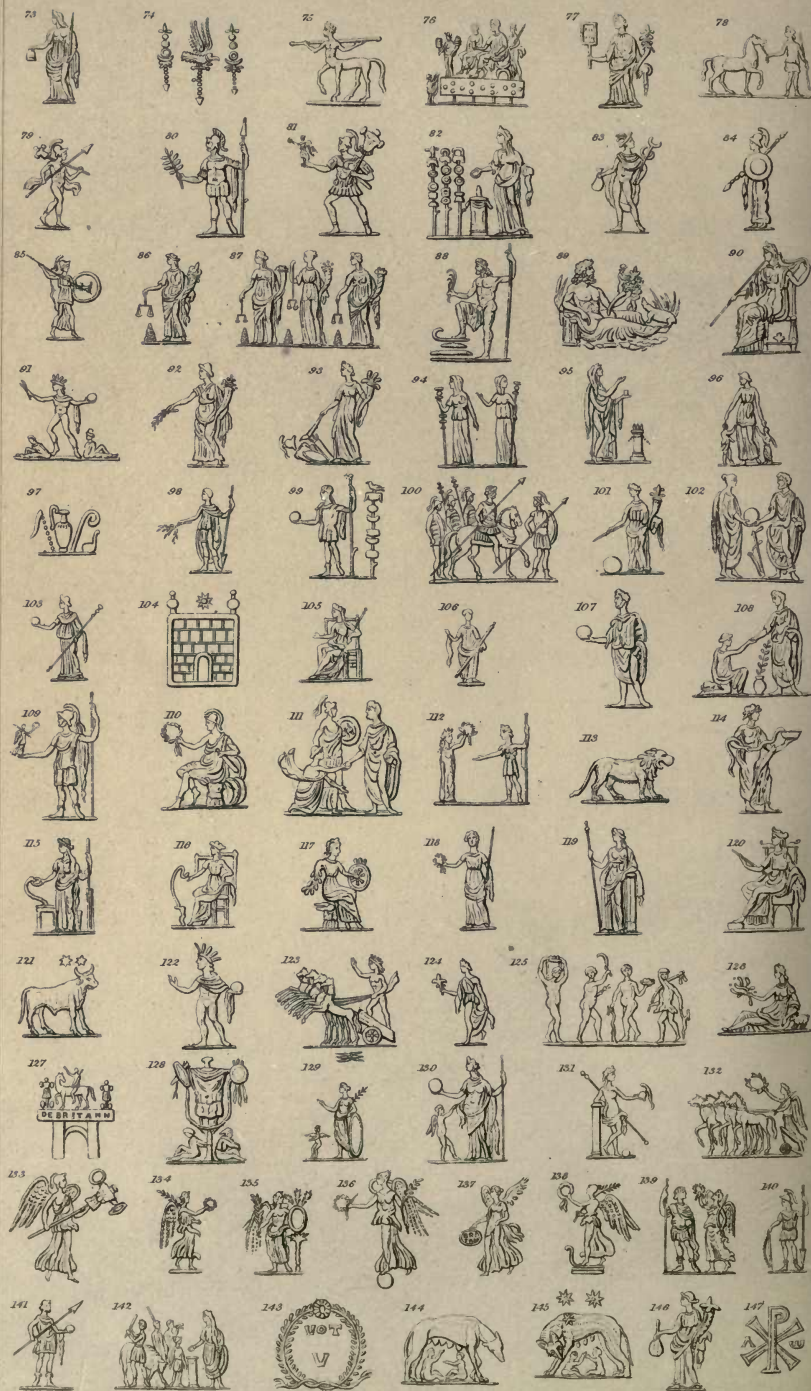 73 74 75 76 77 78
79 80 81 82 83 84
85 86 87 88 89 90
91 92 93 94 95 96
97 98 99 100 101 102
103 104 105 106 107 108
109 110 111 112 113 114
115 116 117 118 119 120
121 122 123 124 125 126
127 128 129 130 131 132
DE BRITANN
133 134 135 136 137 138 139 140
141 142 143 144 145 146 147
VOT
V
A ω